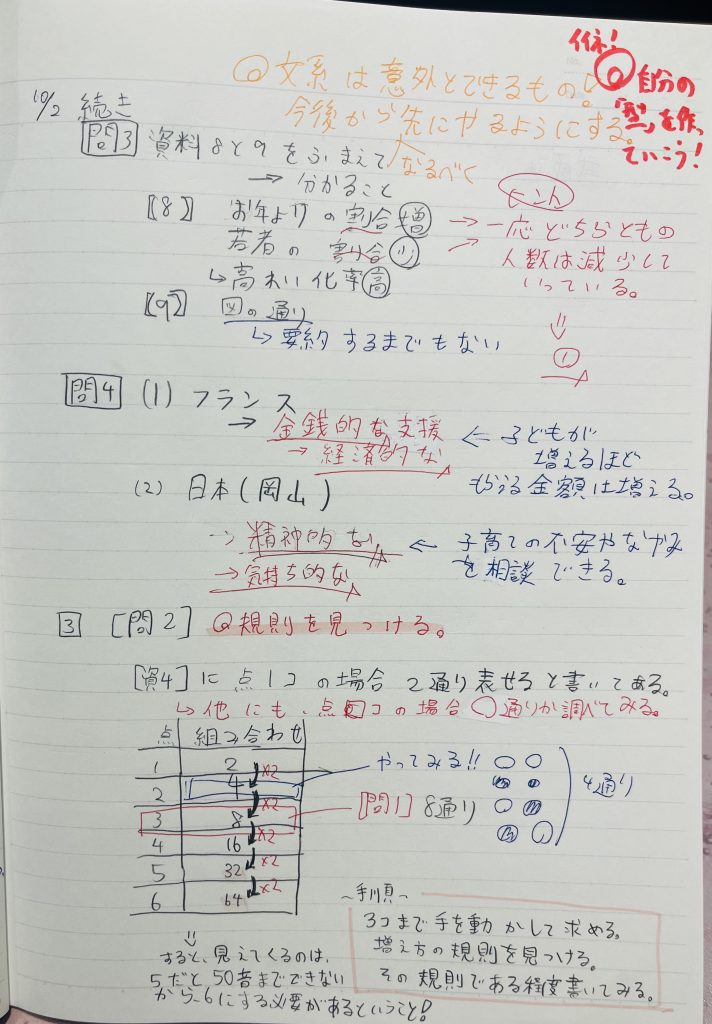 イイネ!
◎自分の
「型」を作っ
ていこう!
◎文系は意外とできるもの!
今後から先にやるようにする。
なるべく
10/2 続き
問3 資料8と9をふまえて
→ 分かること
【8】 お年よりの割合 増
若者の割合 少
↳高れい化率 高
ヒント
→一応どちらともの
人数は減少して
いっている。
⇓
①
【9】 図の通り
↳要約するまでもない
問4 (1) フランス
→ 金銭的な支援
→ 経済的な
⇐ 子どもが
増えるほど
もらえる金額は増える。
(2) 日本(岡山)
→ 精神的な
→気持ち的な
← 子育ての不安やなやみ
を相談できる。
3 [問2] ◎規則を見つける。
[資4]に点1コの場合2通り表せると書いてある。
↳他にも、点□コの場合○通りか調べてみる。
点 組み合わせ
1 2
×2
2 4
×2
3 8
×2
4 16
×2
5 32
×2
6 64
やってみる!!
4通り
[問1] 8通り
⇓
すると、見えてくるのは、
5だと50音までできない
から、6にする必要があるということ!
~手順~
3コまで手を動かして求める。
増え方の規則を見つける。
その規則である程度書いてみる。